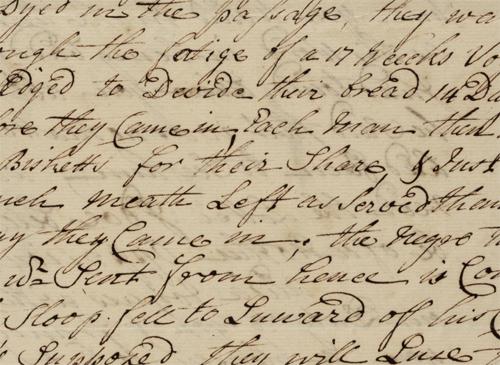 Dyed in the passage, they wa
ough the fatige of a 17 Weeks Vo
edged to Devide their bread 14 Da
ore they Came in, Each man then
Bisketts for their Share, & Just
uch meath Left as Served than
ay they Came in; the Negro
Sent from hence is Co
Sloop fell to Luward of his C
Supposed they will Luse